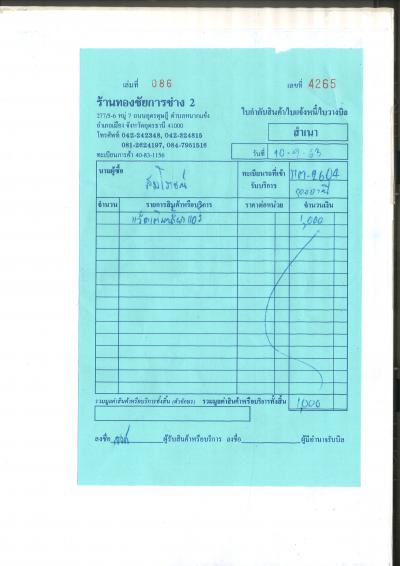 เล่มที่ 086 เลขที่ 4265
ร้านทองชัยการช่าง 2
277/5-6 หมู่ 7 ถนนอุดรดุษฎี ตำบลหมากแข้ง
อำเภอเมือง จังหวัดอุดรธานี 41000
โทรศัพท์ 042-242348, 042-324815
081-2624197, 084-7951516
ทะเบียนการค้า 40-83-1156
ใบกำกับสินค้า/ใบแจ้งหนี้/ใบวางบิล
สำเนา
วันที่ 10-9-63
นามผู้ซื้อ สมโภชน์
ทะเบียนรถที่เข้ารับบริการ
อุดรธานี
จำนวน รายการสินค้าหรือบริการ ราคาต่อหน่วย จำนวนเงิน
1,000
รวมมูลค่าสินค้าหรือบริการทั้งสิ้น (ตัวอักษร) รวมมูลค่าสินค้าหรือบริการทั้งสิ้น 1,000
ลงชื่อ ผู้รับสินค้าหรือบริการ ลงชื่อ ผู้มีอำนาจรับบิล